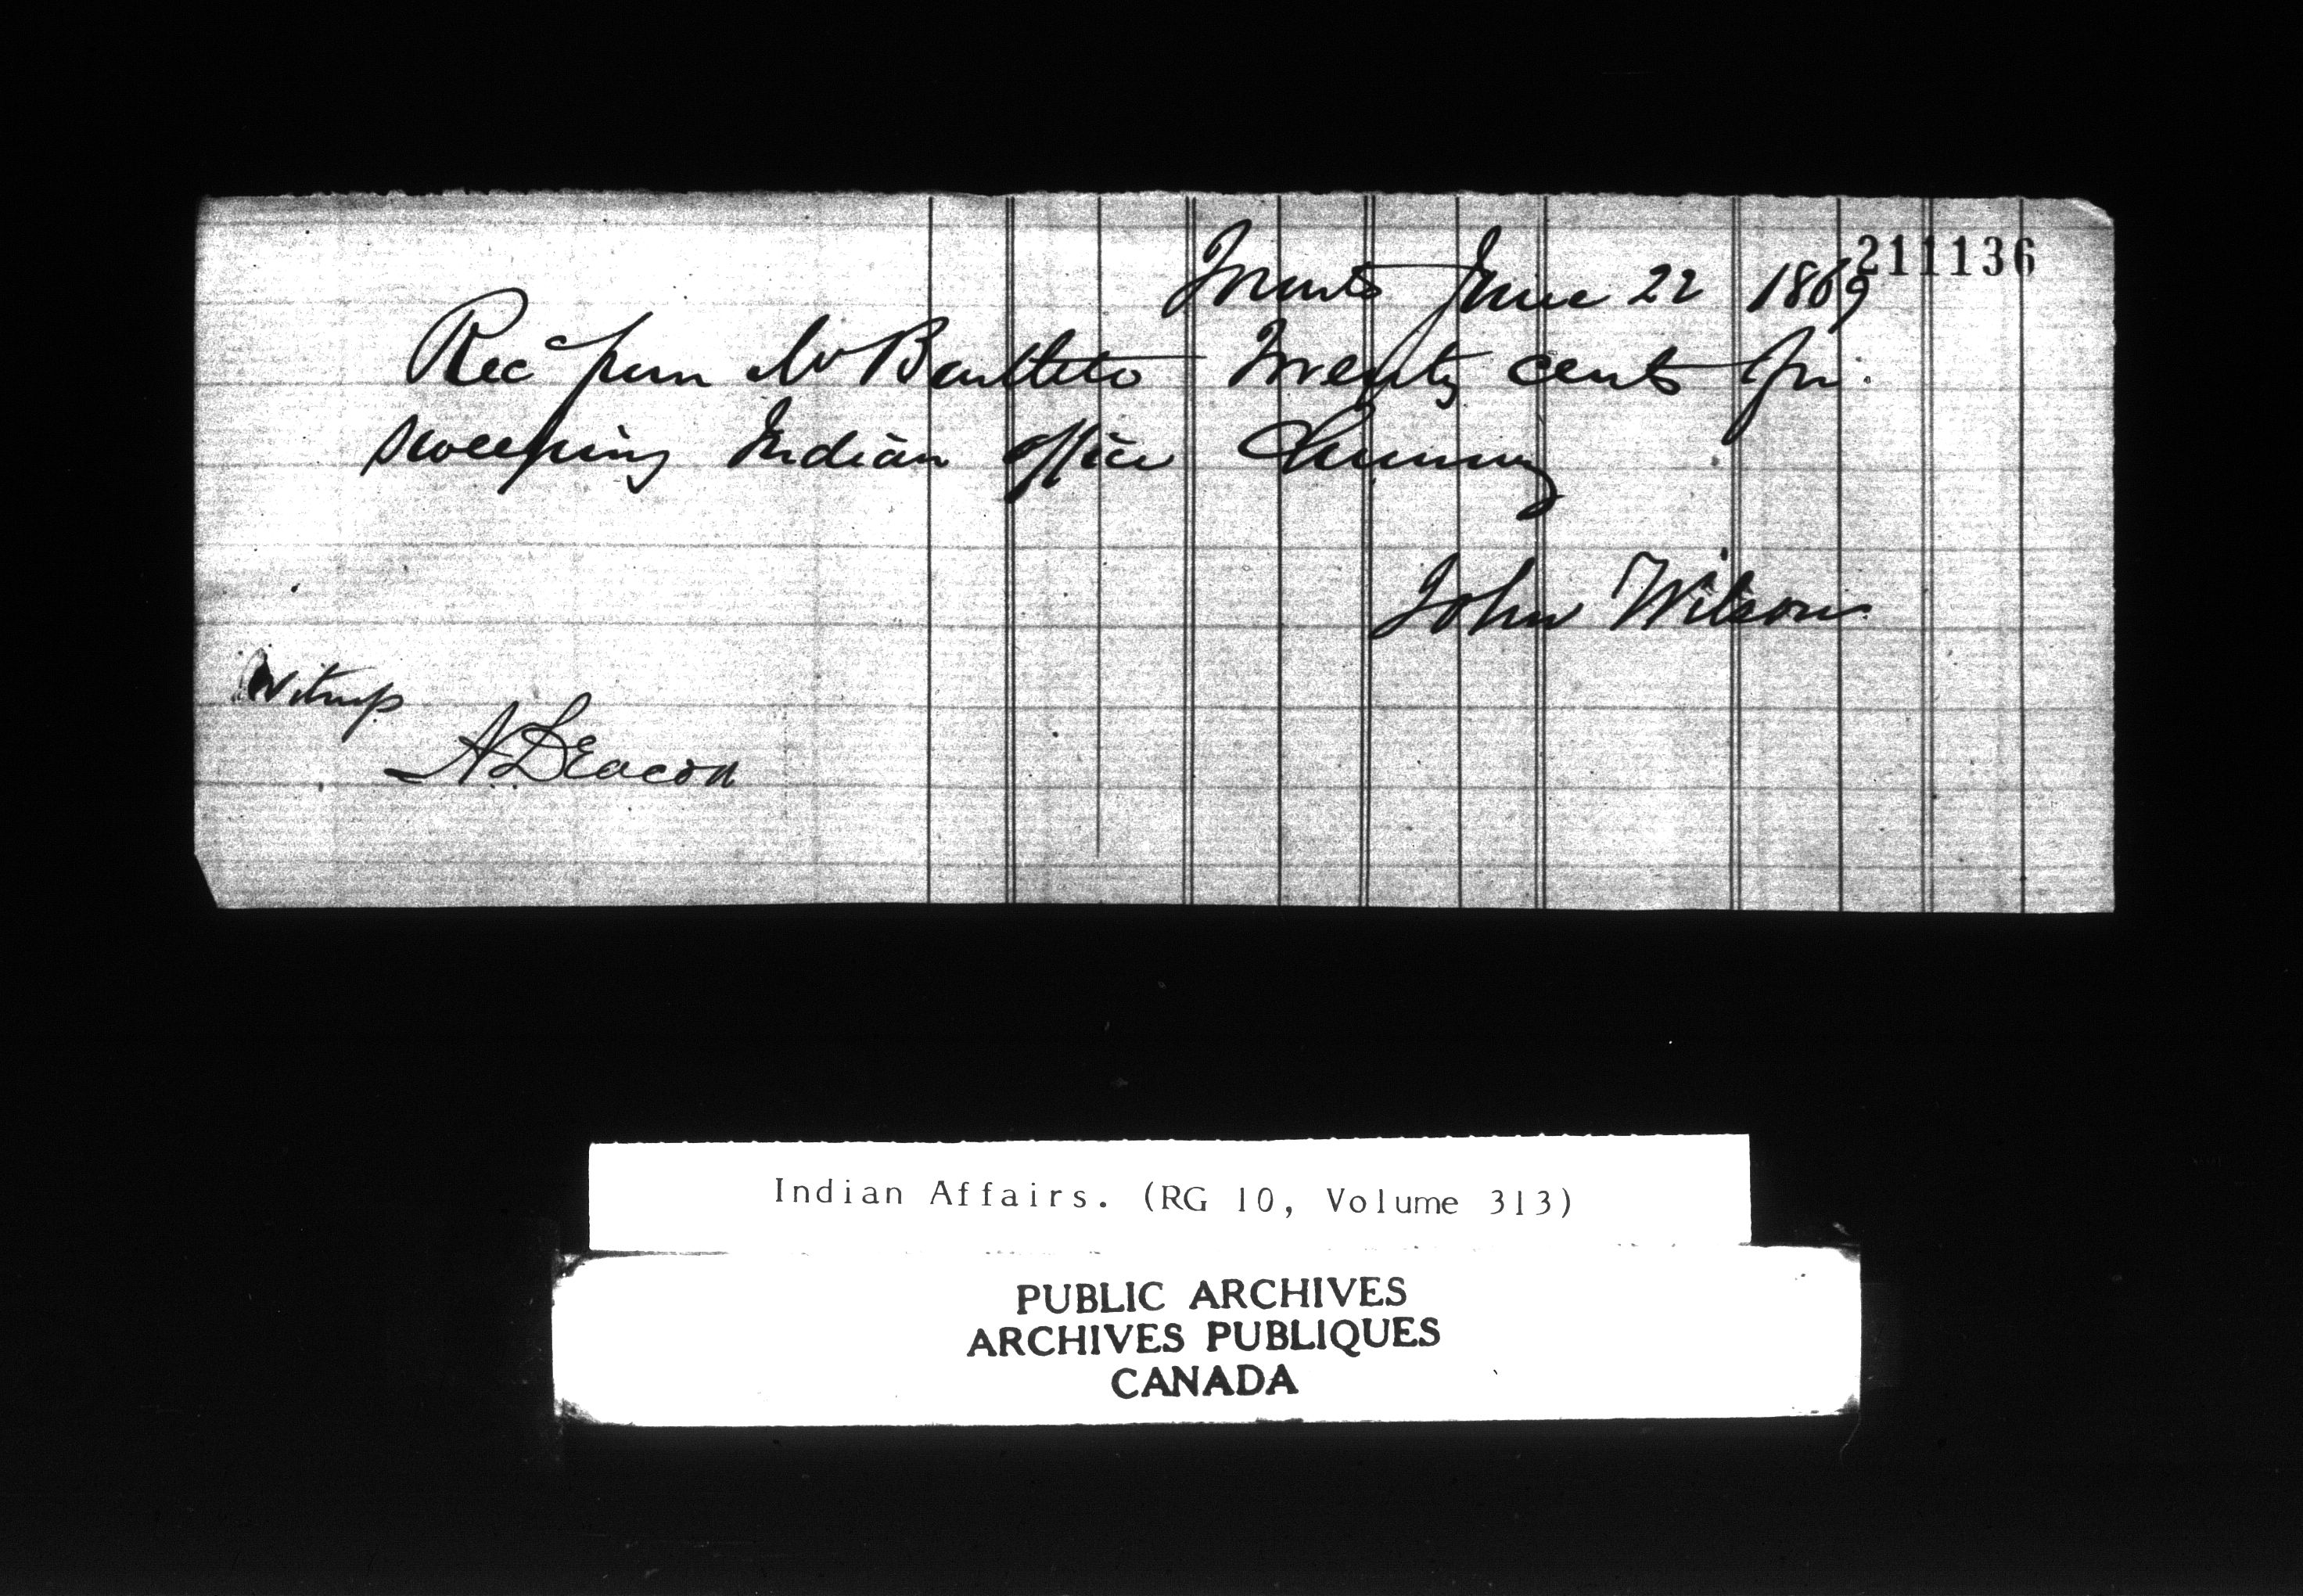 211136
Toronto June 22 1869
Recd from Mr Bartlett Twenty cents for
sweeping Indian office Chimney
John Wilson
Witness
A Deacon
Indian Affairs. (RG 10, Volume 313)
PUBLIC ARCHIVES
ARCHIVES PUBLIQUES
CANADA